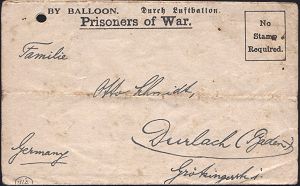 BY BALLOON. Durch Luftballon.
Prisoners of War.
No
Stamp
Required.
Familie
Otto Schmidt,
Durlach (Baden)
Germany